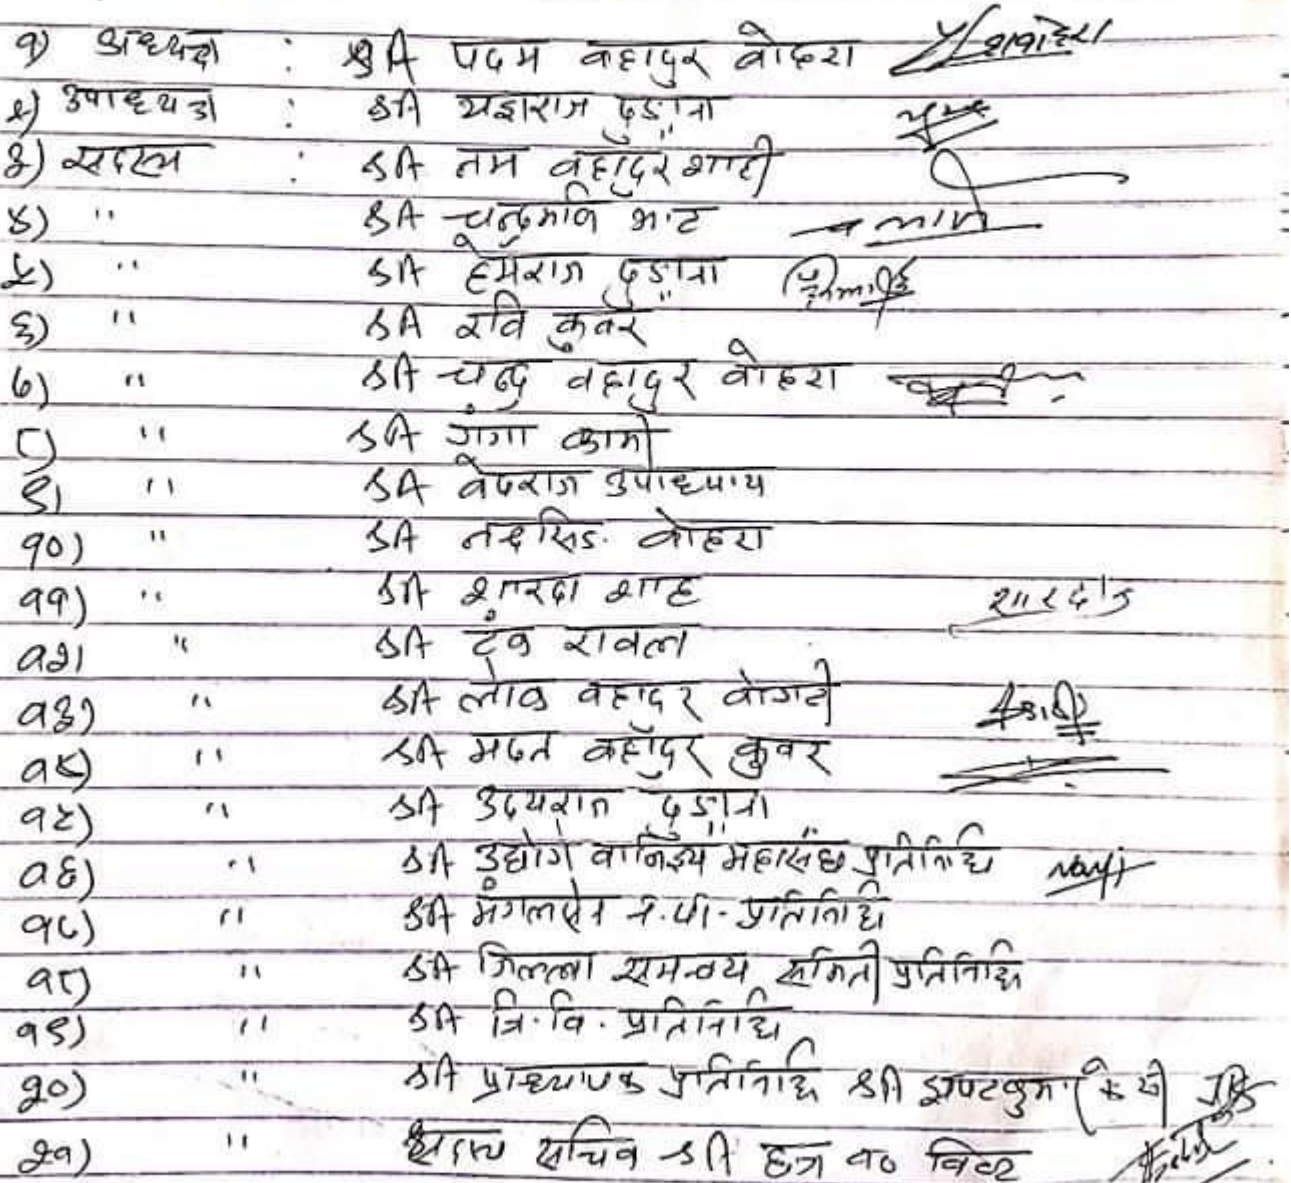 १) अध्यक्ष : श्री पदम बहादुर बोहरा
२) उपाध्यक्ष : श्री यज्ञराज ढुङ्गाना
३) सदस्य : श्री नम बहादुर शाही
४) " श्री चन्द्रमणि भाट
५) " श्री हेमराज ढुङ्गाना
६) " श्री रवि कुवर
७) " श्री चन्द्र बहादुर बोहरा
८) " श्री गंगा कामी
९) " श्री वेदराज उपाध्याय
१०) " श्री नन्दसिङ बोहरा
११) " श्री शारदा शाह शारदा
१२) " श्री टंक रावल
१३) " श्री लोक बहादुर बोगटी
१४) " श्री मदन बहादुर कुवर
१५) " श्री उदयराज ढुङ्गाना
१६) " श्री उद्योग वानिज्य महासंघ प्रतिनिधि
१७) " श्री मंगलसेन न.पा. प्रतिनिधि
१८) " श्री जिल्ला समन्वय समिती प्रतिनिधि
१९) " श्री त्रि.वि. प्रतिनिधि
२०) " श्री प्राध्यापक प्रतिनिधि श्री
२१) " सदस्य सचिव श्री व०